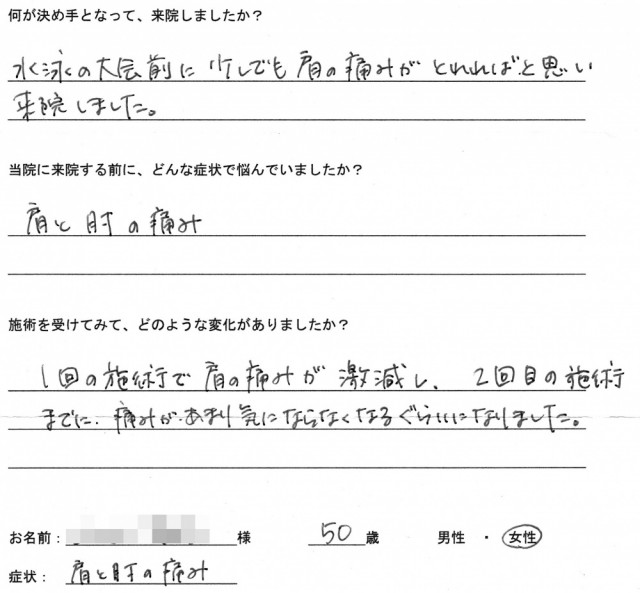 何が決め手となって、来院しましたか？
水泳の大会前に少しでも肩の痛みがとれればと思い
来院しました。
当院に来院する前に、どんな症状で悩んでいましたか？
肩と肘の痛み
施術を受けてみて、どのような変化がありましたか？
1回の施術で肩の痛みが激減し、2回目の施術
までに、痛みがあまり気にならなくなるぐらいになりました。
お名前： 様 50 歳 男性 ・ 女性
症状： 肩と肘の痛み